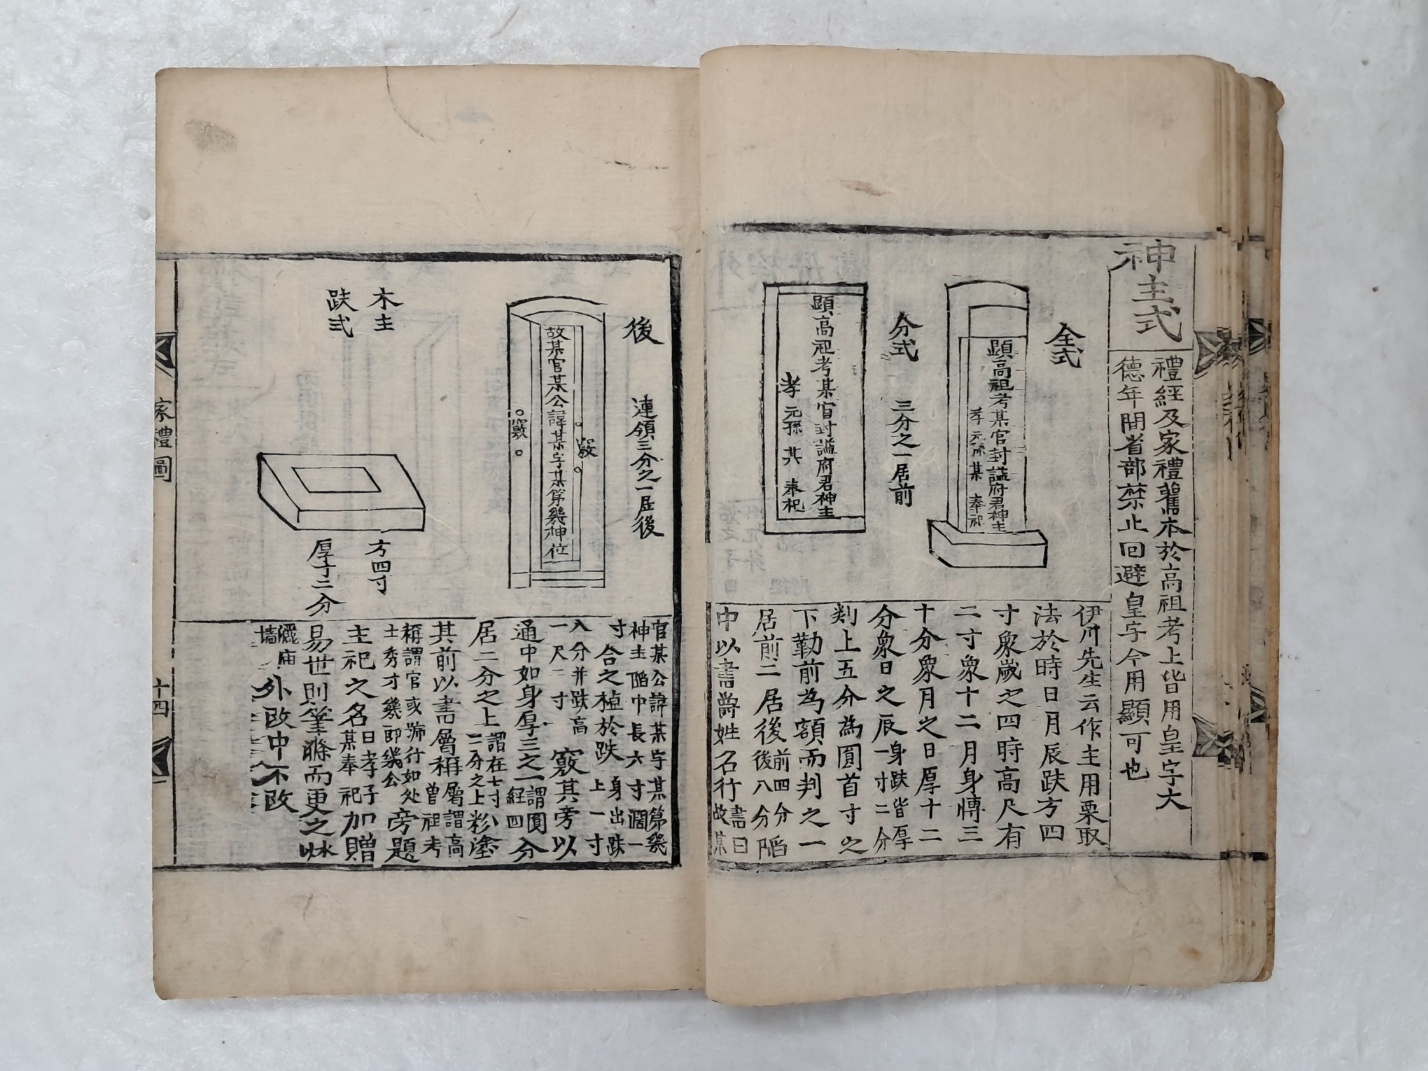 神主式
禮經及家禮舊本於高祖考上皆用皇字大
德年間省部禁止回避皇字今用顯可也
全式
顯高祖考某官封諡府君神主
孝元孫某奉祀
分式
三分之一居前
顯高祖考某官封諡府君神主
孝元孫某奉祀
伊川先生云作主用栗取
法於時日月辰趺方四
寸象歲之四時高尺有
二寸象十二月身博三
十分象月之日厚十二
分象日之辰身趺皆厚一寸二分
剡上五分為圓首寸之
下勒前為額而判之一
居前二居後前四分後八分陷
中以書爵姓名行書曰故某
後
連領三分之一居後
故某官某公諱某字某第幾神位
竅
竅
木主
趺式
方四寸
厚寸二分
官某公諱某字某第幾
神主陷中長六寸濶一
寸合之植於趺身出趺上一寸
八分并趺高一尺二寸竅其旁以
通中如身厚三之一謂圓徑四分
居二分之上謂在七寸二分之上粉塗
其前以書屬稱屬謂高曾祖考
稱謂官或號行如處士秀才幾郎幾公旁題
主祀之名某曰孝子奉祀加贈
易世則筆滌而更之水
灑廟墻外改中不改
家禮圖
十四